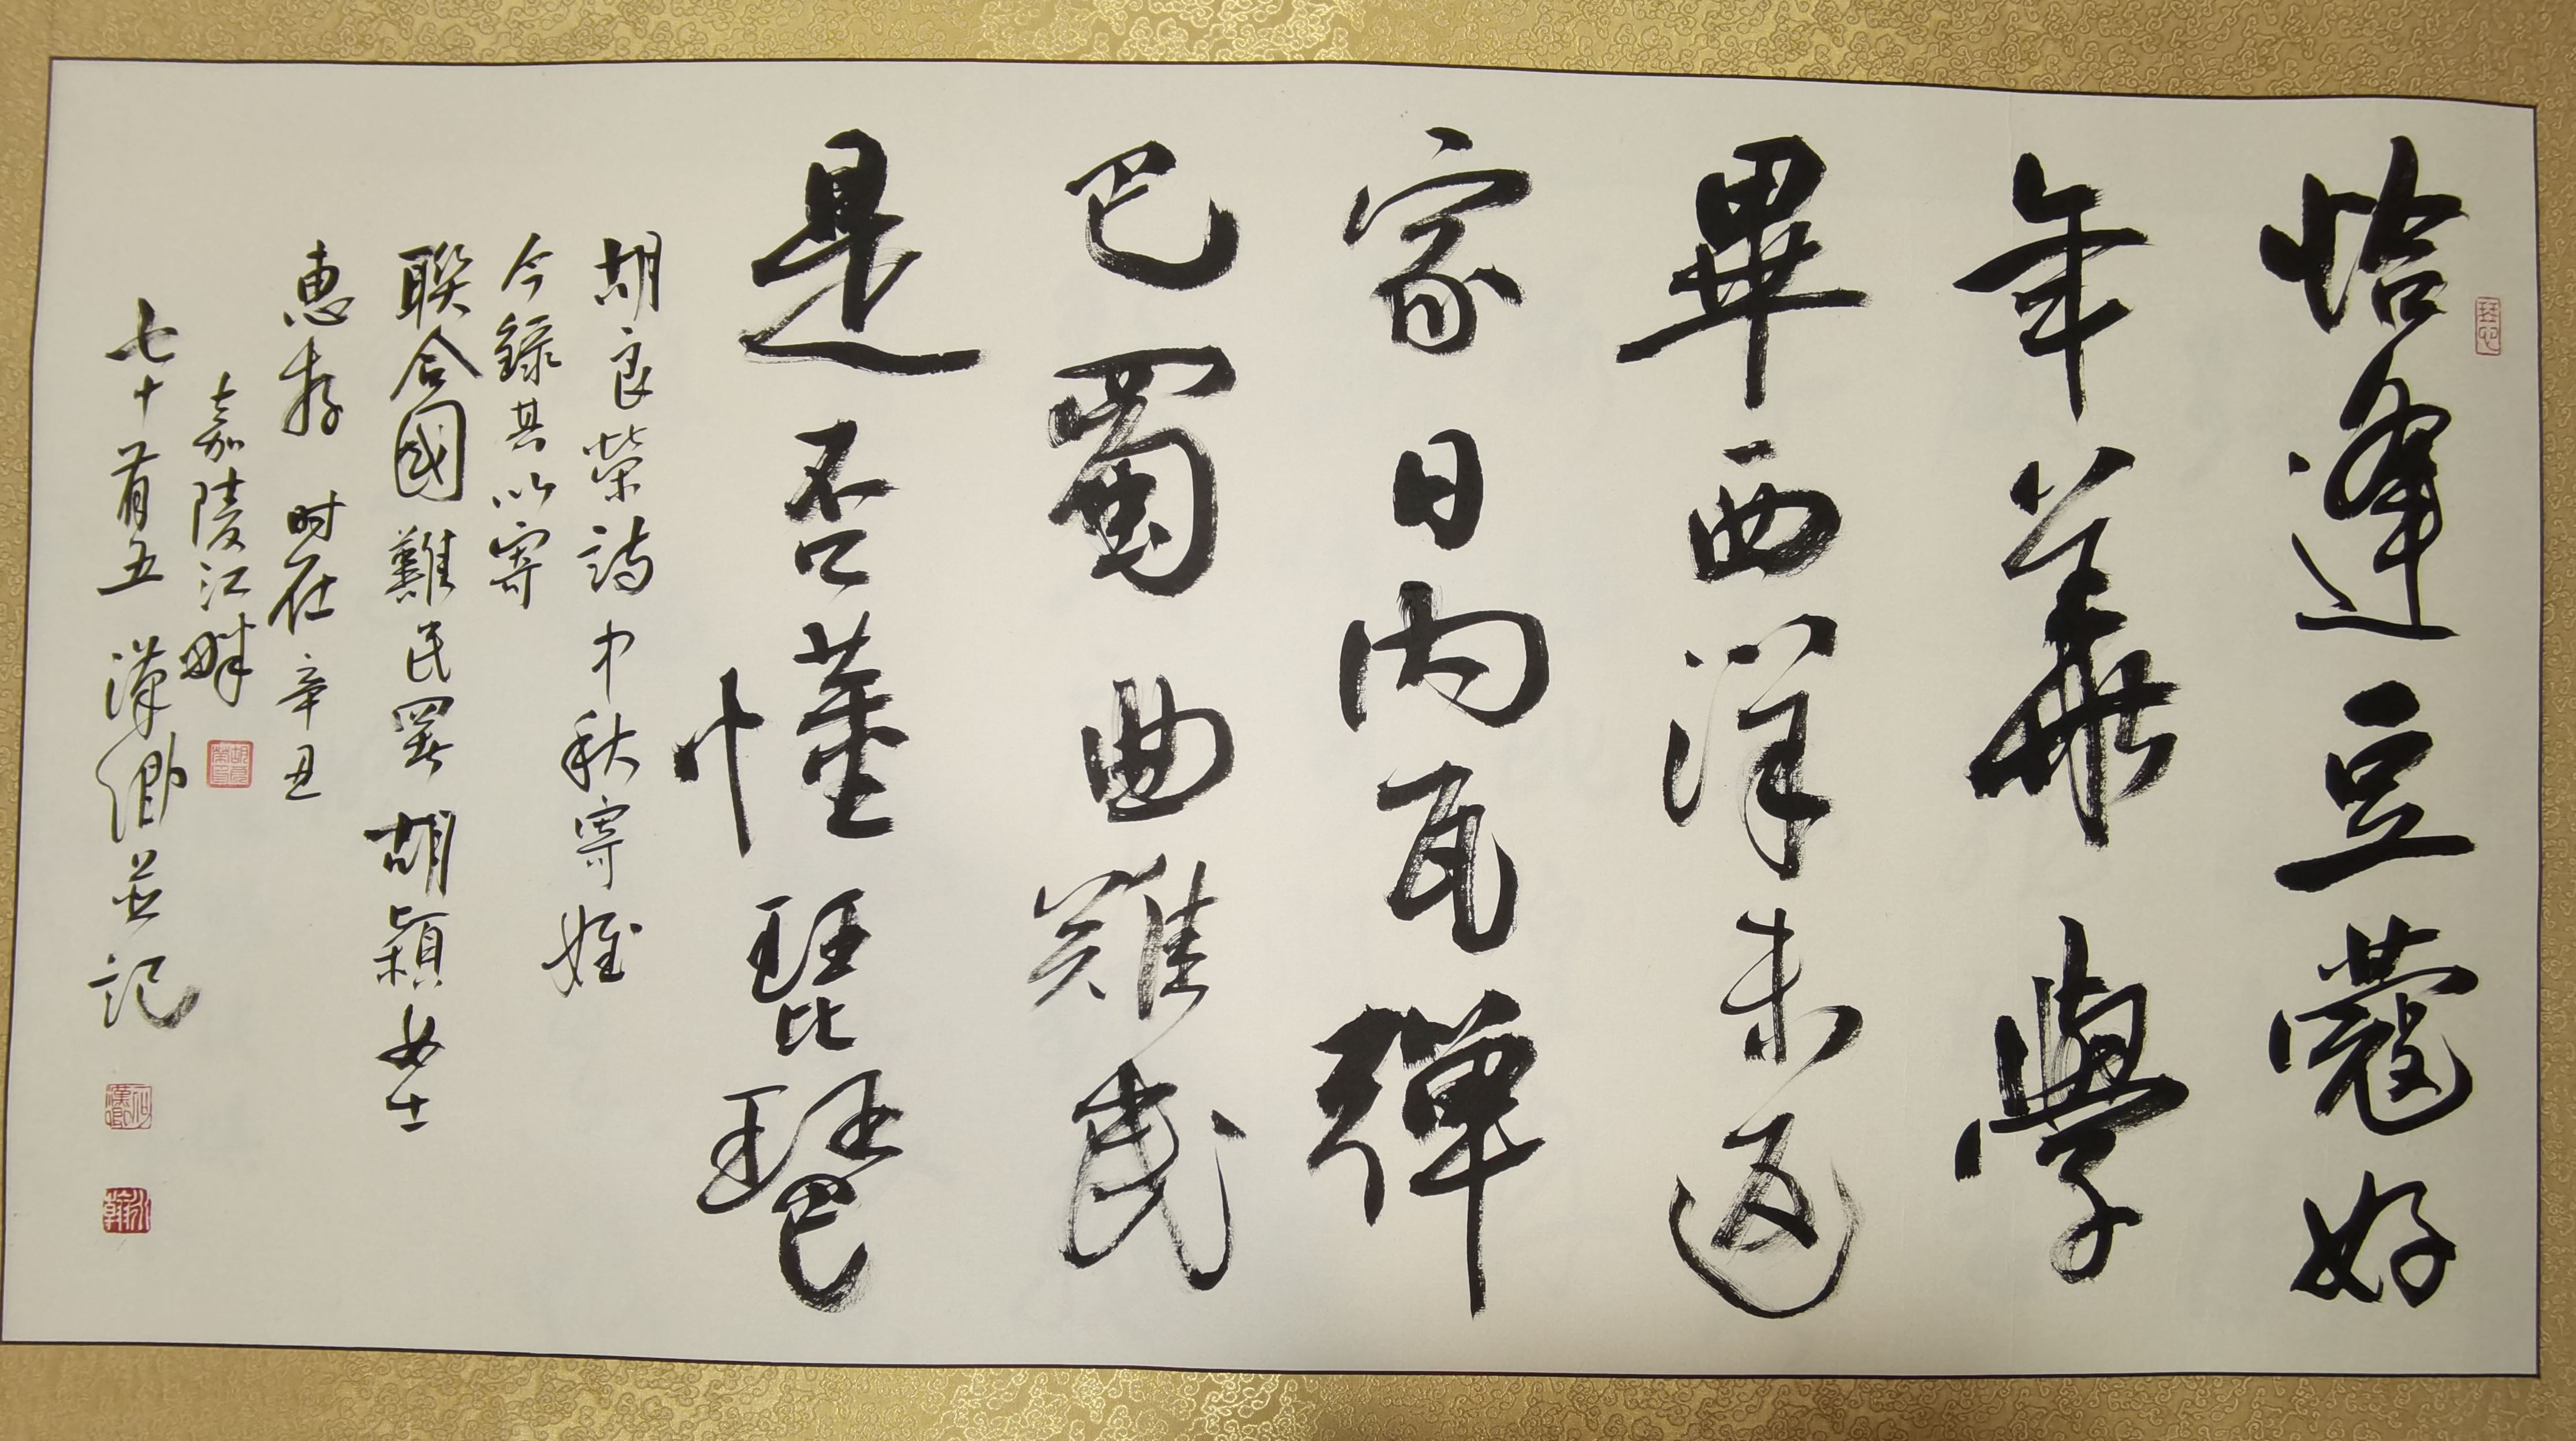 恰逢豆蔻好
年華學
畢西洋未返
家日內瓦彈
巴蜀曲難民
是否懂琵琶
胡良榮詩中秋寄姪
今錄其以寄
聯合國難民署胡穎女士
惠存 时在辛丑
嘉陵江畔
七十有五漢卿並記